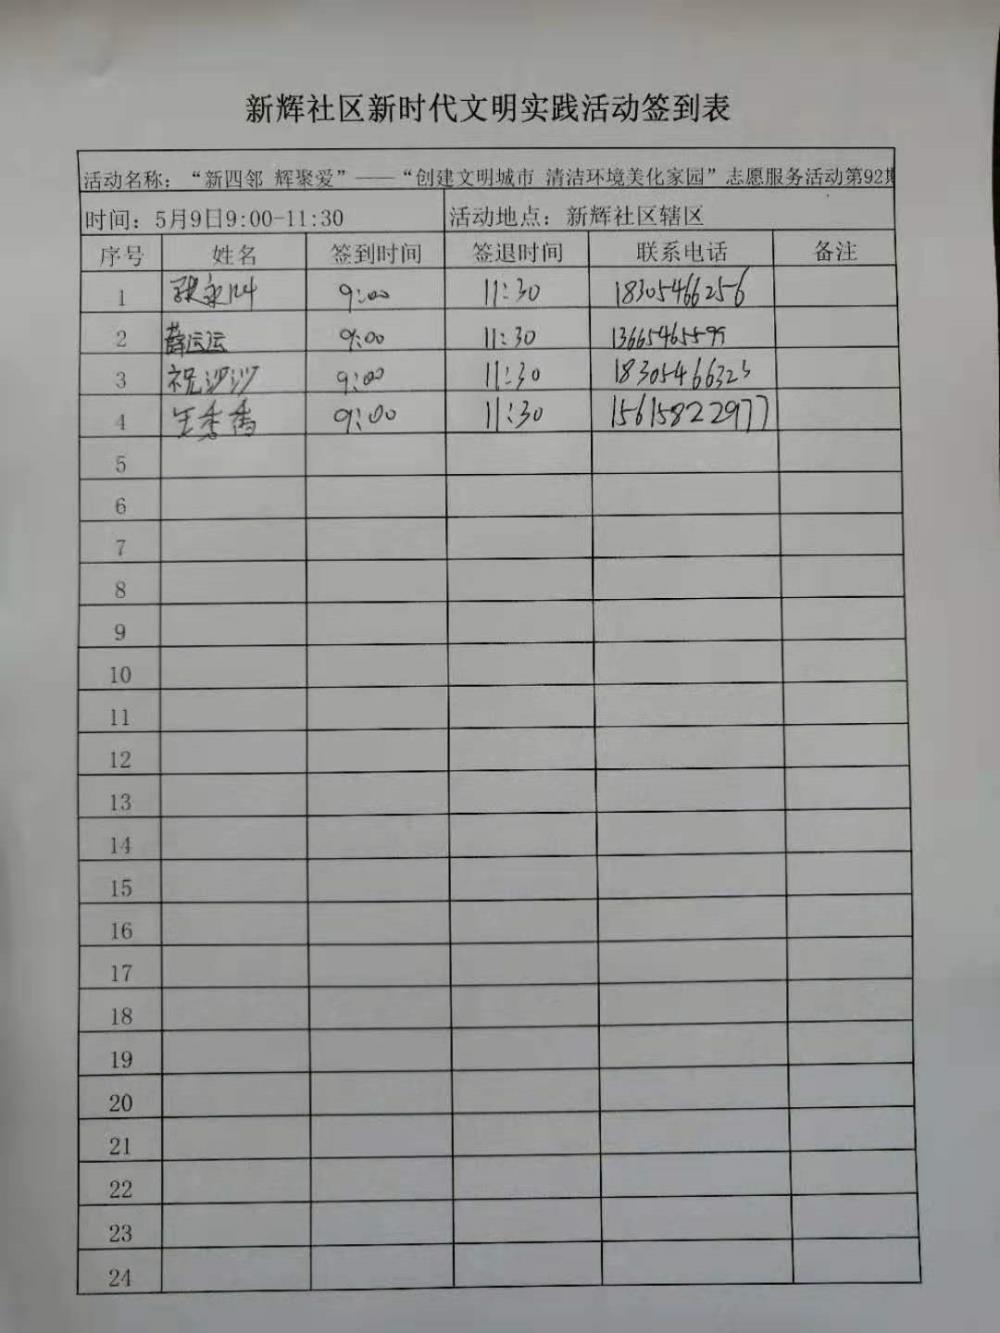 新辉社区新时代文明实践活动签到表
活动名称：“新四邻 辉聚爱”——“创建文明城市 清洁环境美化家园”志愿服务活动第92期
时间：5月9日9:00-11:30 活动地点：新辉社区辖区
序号 姓名 签到时间 签退时间 联系电话 备注
1 9:00 11:30 18305466256
2 薛运运 9:00 11:30 13665465599
3 祝沙沙 9:00 11:30 18305466323
4 王秀香 9:00 11:30 15615822977
5
6
7
8
9
10
11
12
13
14
15
16
17
18
19
20
21
22
23
24